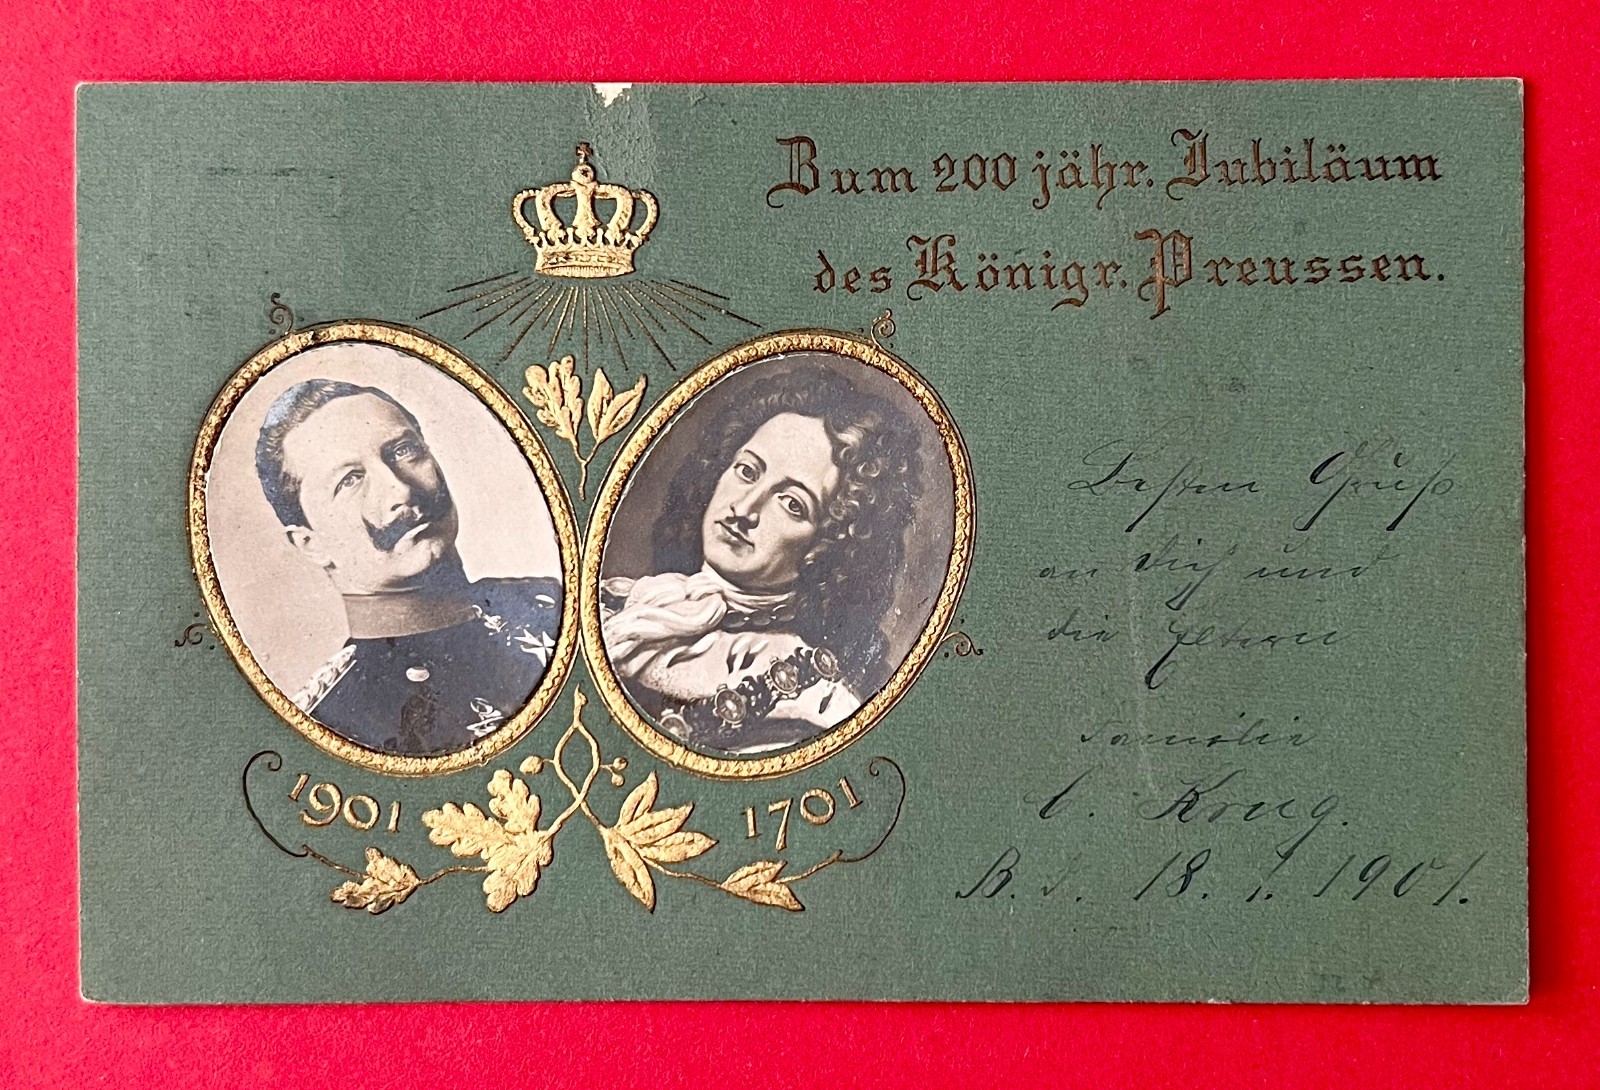 Zum 200 jähr. Jubiläum
des Königr. Preussen.
1901
1701
Besten Gruß
an Dich und
die Eltern
Familie
C. Krug.
B. d. 18. 1. 1901.